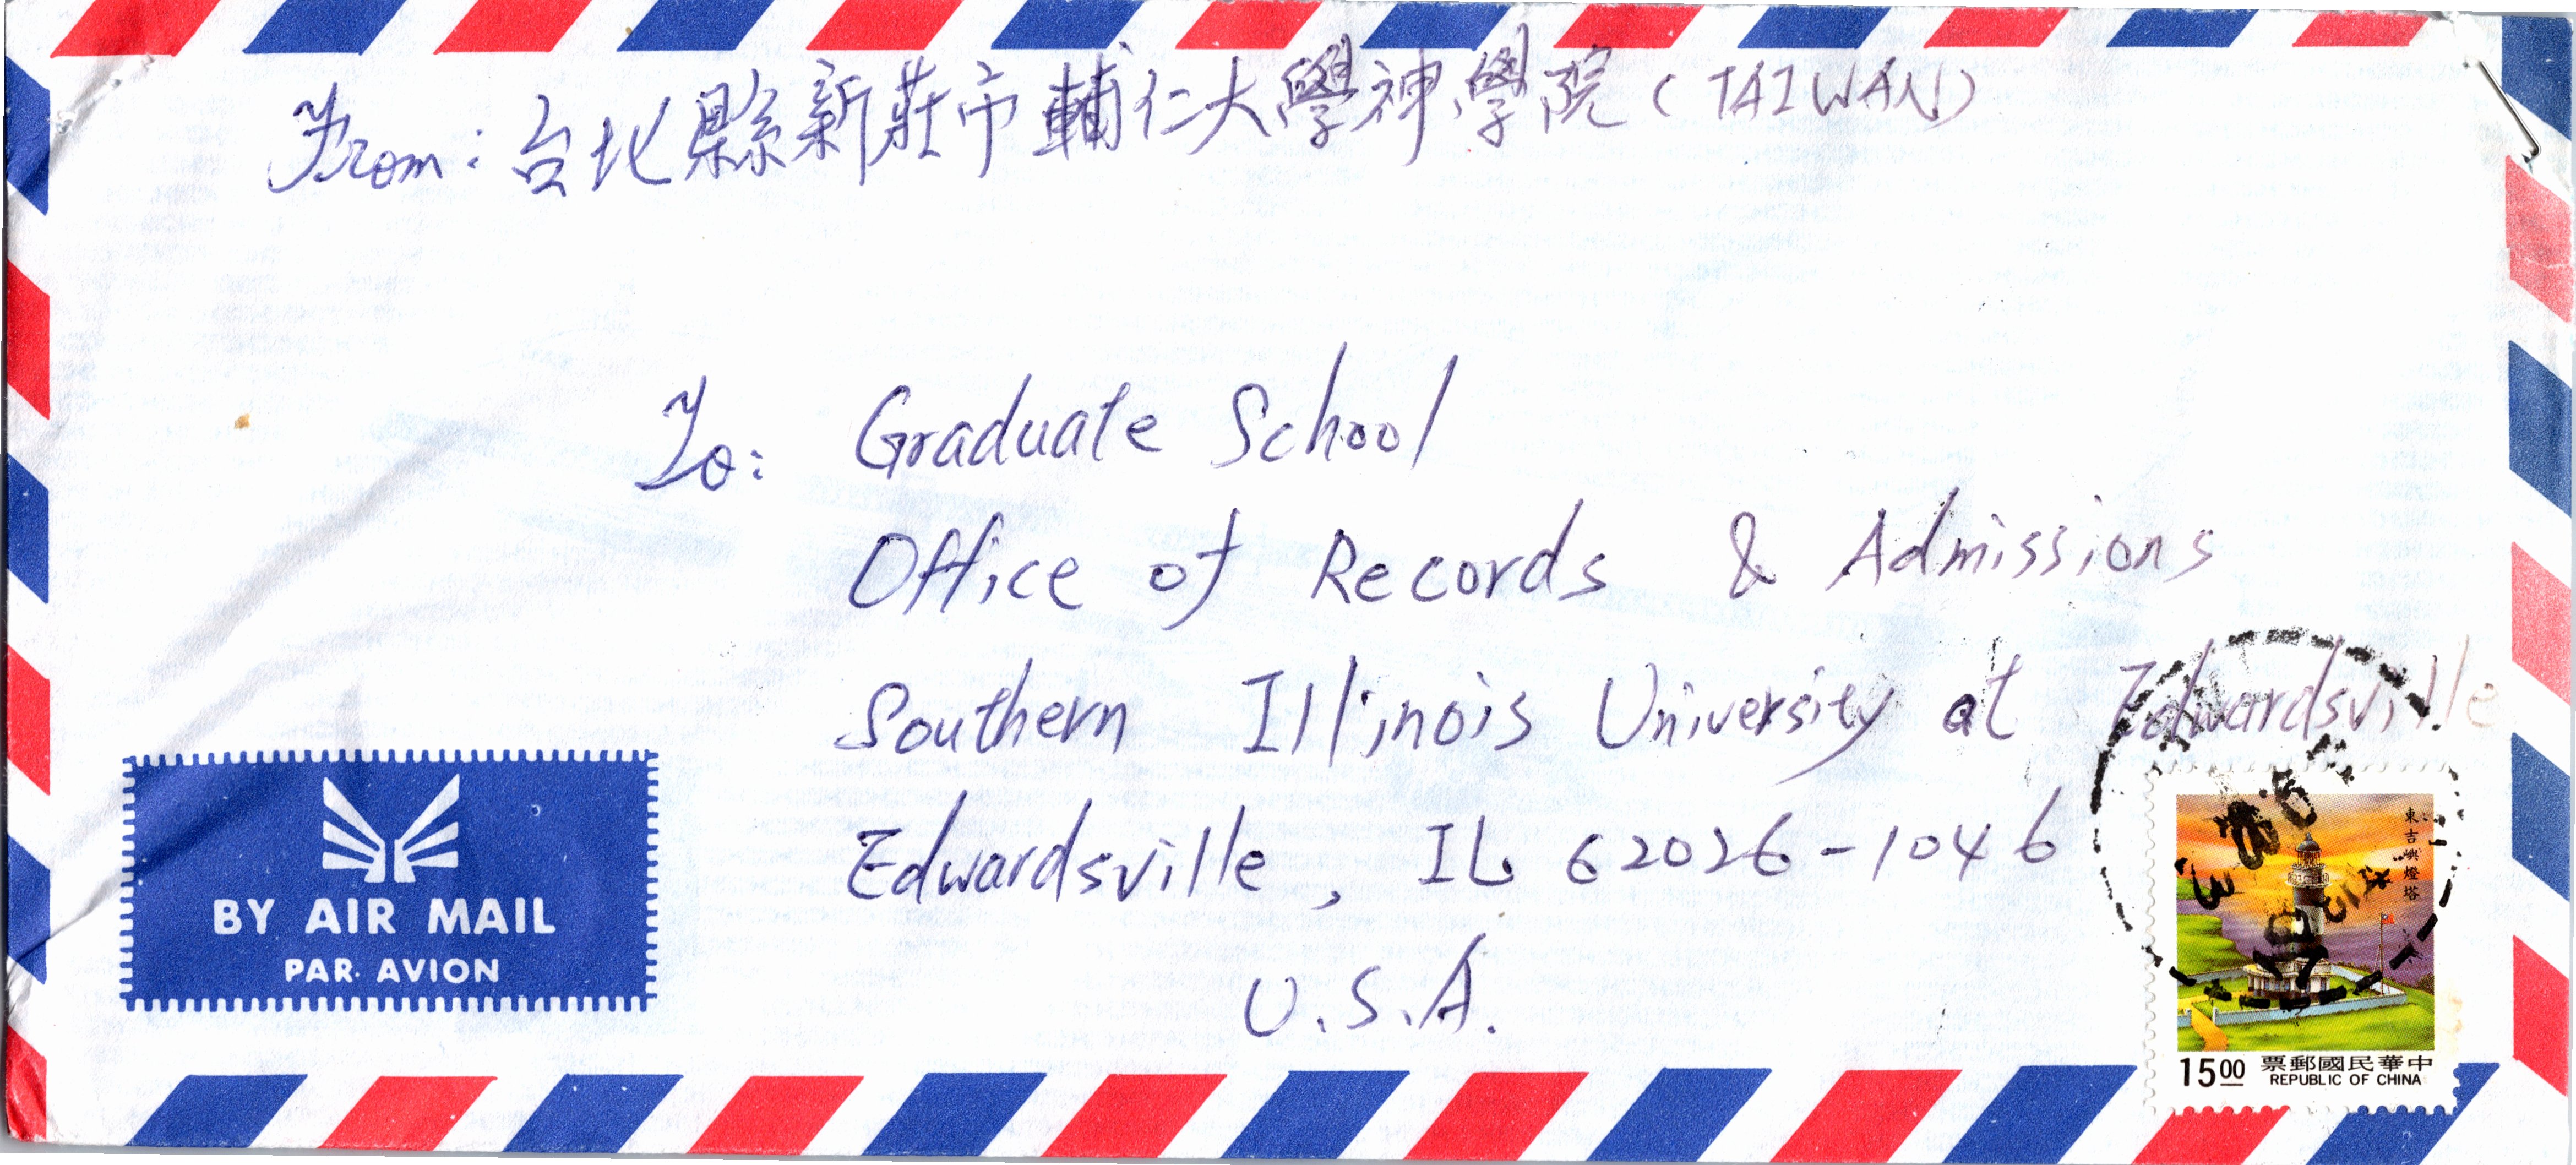 From: 台北縣新莊市輔仁大學神學院 (TAIWAN)
To: Graduate School
Office of Records & Admissions
Southern Illinois University at Edwardsville
Edwardsville, IL 62026-1046
U.S.A.
BY AIR MAIL
PAR AVION
東吉嶼燈塔
15.00 票郵國民華中
REPUBLIC OF CHINA